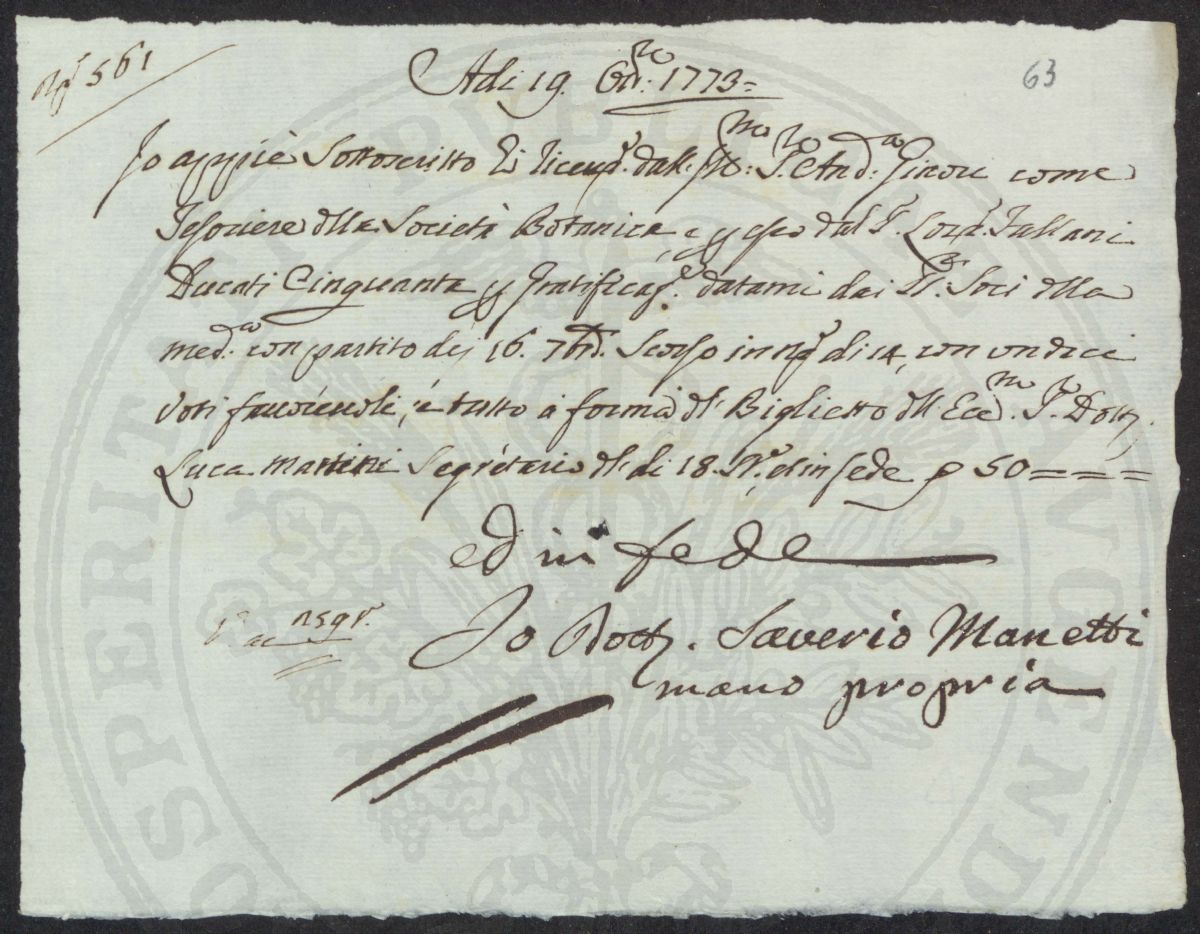 N.º 561
63
Adi 19. Ott.re 1773=
Io appiè Sottoscritto hò ricev.º dall' Ill.mo S.re And.a Ginori come
Tesoriere della Società Botanica, e p esso dal S.r Lor.º Fallani
Ducati Cinquanta p gratificaz.e datami dai SS.ri Soci della
med.a con partito de 16. 7bre. Scorso in nº di 14, con undici
voti favorevoli, e tutto a forma del Biglietto dell' Ecc.mo S.r Dott.
Luca Martini Segretario de di 18. ed in fede 50====
ed in fede
Io Dott. Saverio Manetti
mano propria
PROSPERITATI PUBLICAE AUGENDAE